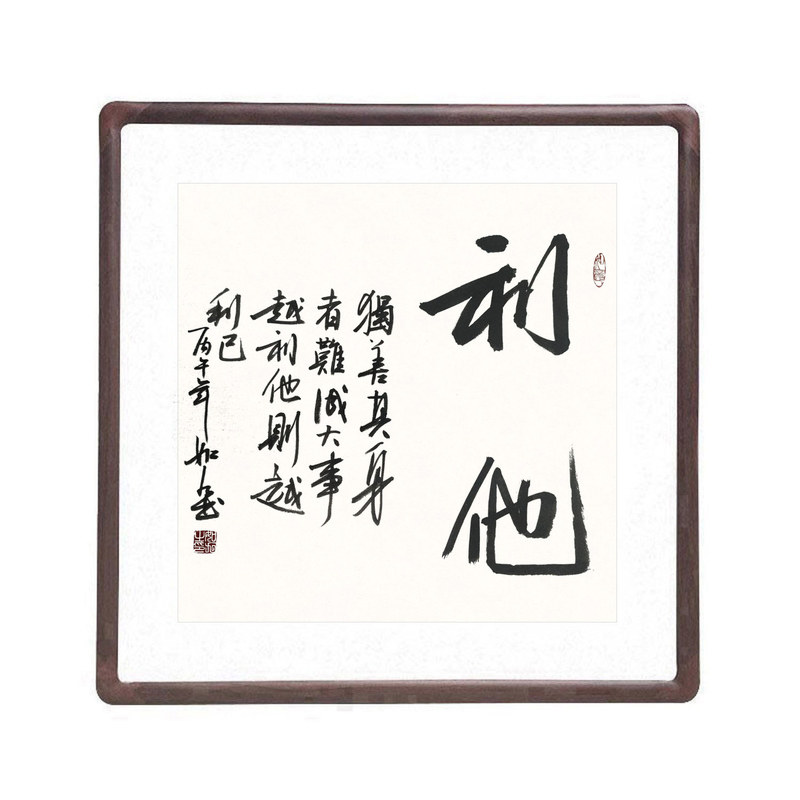 利他
獨善其身
者難成大事
越利他則越
利己
丙午年如